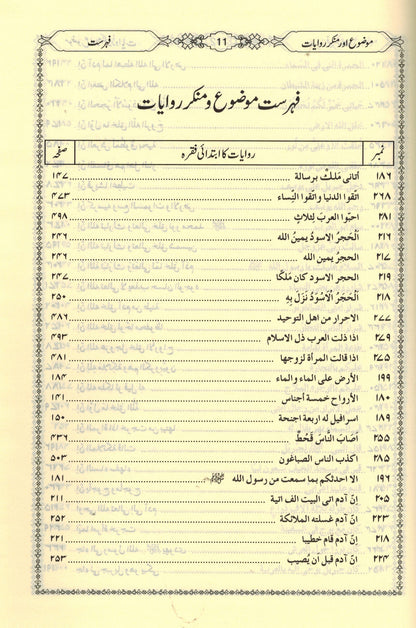 موضوع اور منکر روایات 11 فہرست
فہرست موضوع و منکر روایات
نمبر روایات کا ابتدائی فقرہ صفحہ
۱۸۶ أتانی مَلکٌ برسالة ۱۴۷
۲۶۸ اتّقوا الدنیا واتّقوا النِّساء ۴۷۳
۲۸۱ احبّوا العربَ لِثلاثٍ ۴۹۸
۲۱۶ اَلْحَجرُ الاسودُ یمینُ اللہ ۲۴۶
۲۱۷ الحجرُ یمین اللہ ۲۴۶
۲۱۹ الحجر الاسود کان مَلَکًا ۲۴۷
۲۱۸ اَلْحَجَرُ الْاَسْوَدُ نَزَلَ بِهٖ ۲۵۰
۲۷۷ الاحرار من اھل التوحید ۴۸۶
۲۷۹ اذا ذلت العرب ذل الاسلام ۴۹۳
۲۷۵ اذا قالت المرأة لزوجھا ۴۸۱
۱۹۹ الأرض علی الماء والماء ۱۸۴
۱۸۰ الأرواح خمسة أجناس ۱۴۱
۱۸۹ اسرافیل له اربعة اجنحة ۱۵۰
۲۵۵ اَصَابَ النَّاسُ قَحْطٌ ۴۳۶
۲۸۵ اکذب الناس الصباغون ۵۰۳
۱۹۶ الا احدثکم بما سمعت من رسول اللہ ﷺ ۱۸۱
۲۰۵ اِنّ آدم اتی البیت الف اتیة ۲۱۱
۲۲۳ اِنّ آدم غسلته الملائکة ۲۵۲
۲۱۸ اِنّ آدم قام خطیبا ۲۲۱
۲۲۴ اِنّ آدم قبل أن یُصیب ۲۵۳